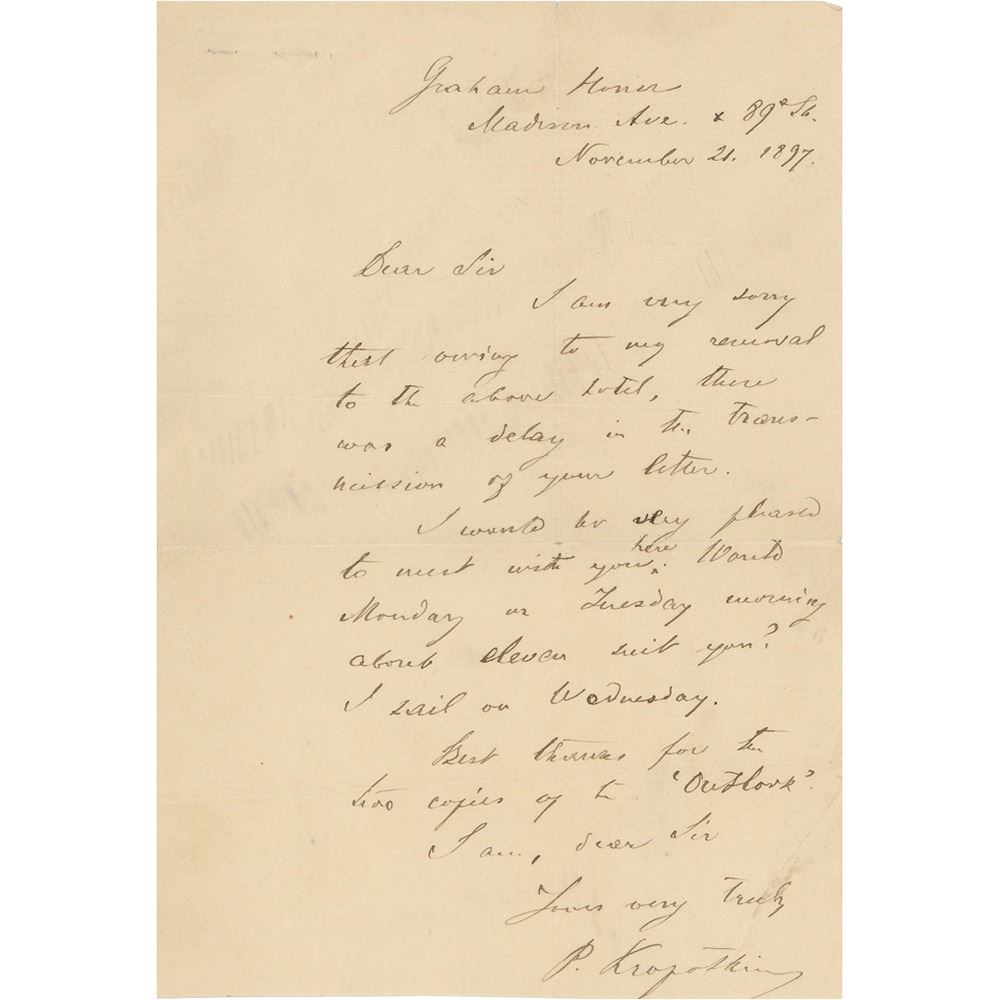 Graham House
Madison Ave. & 89th St.
November 21. 1897.
Dear Sir
I am very sorry
that owing to my removal
to the above hotel, there
was a delay in the trans-
mission of your letter.
I would be very pleased
to meet with you here. Would
Monday or Tuesday morning
about eleven suit you?
I sail on Wednesday.
Best thanks for the
two copies of the 'Outlook'.
I am, dear Sir
Yours very truly
P. Kropotkin